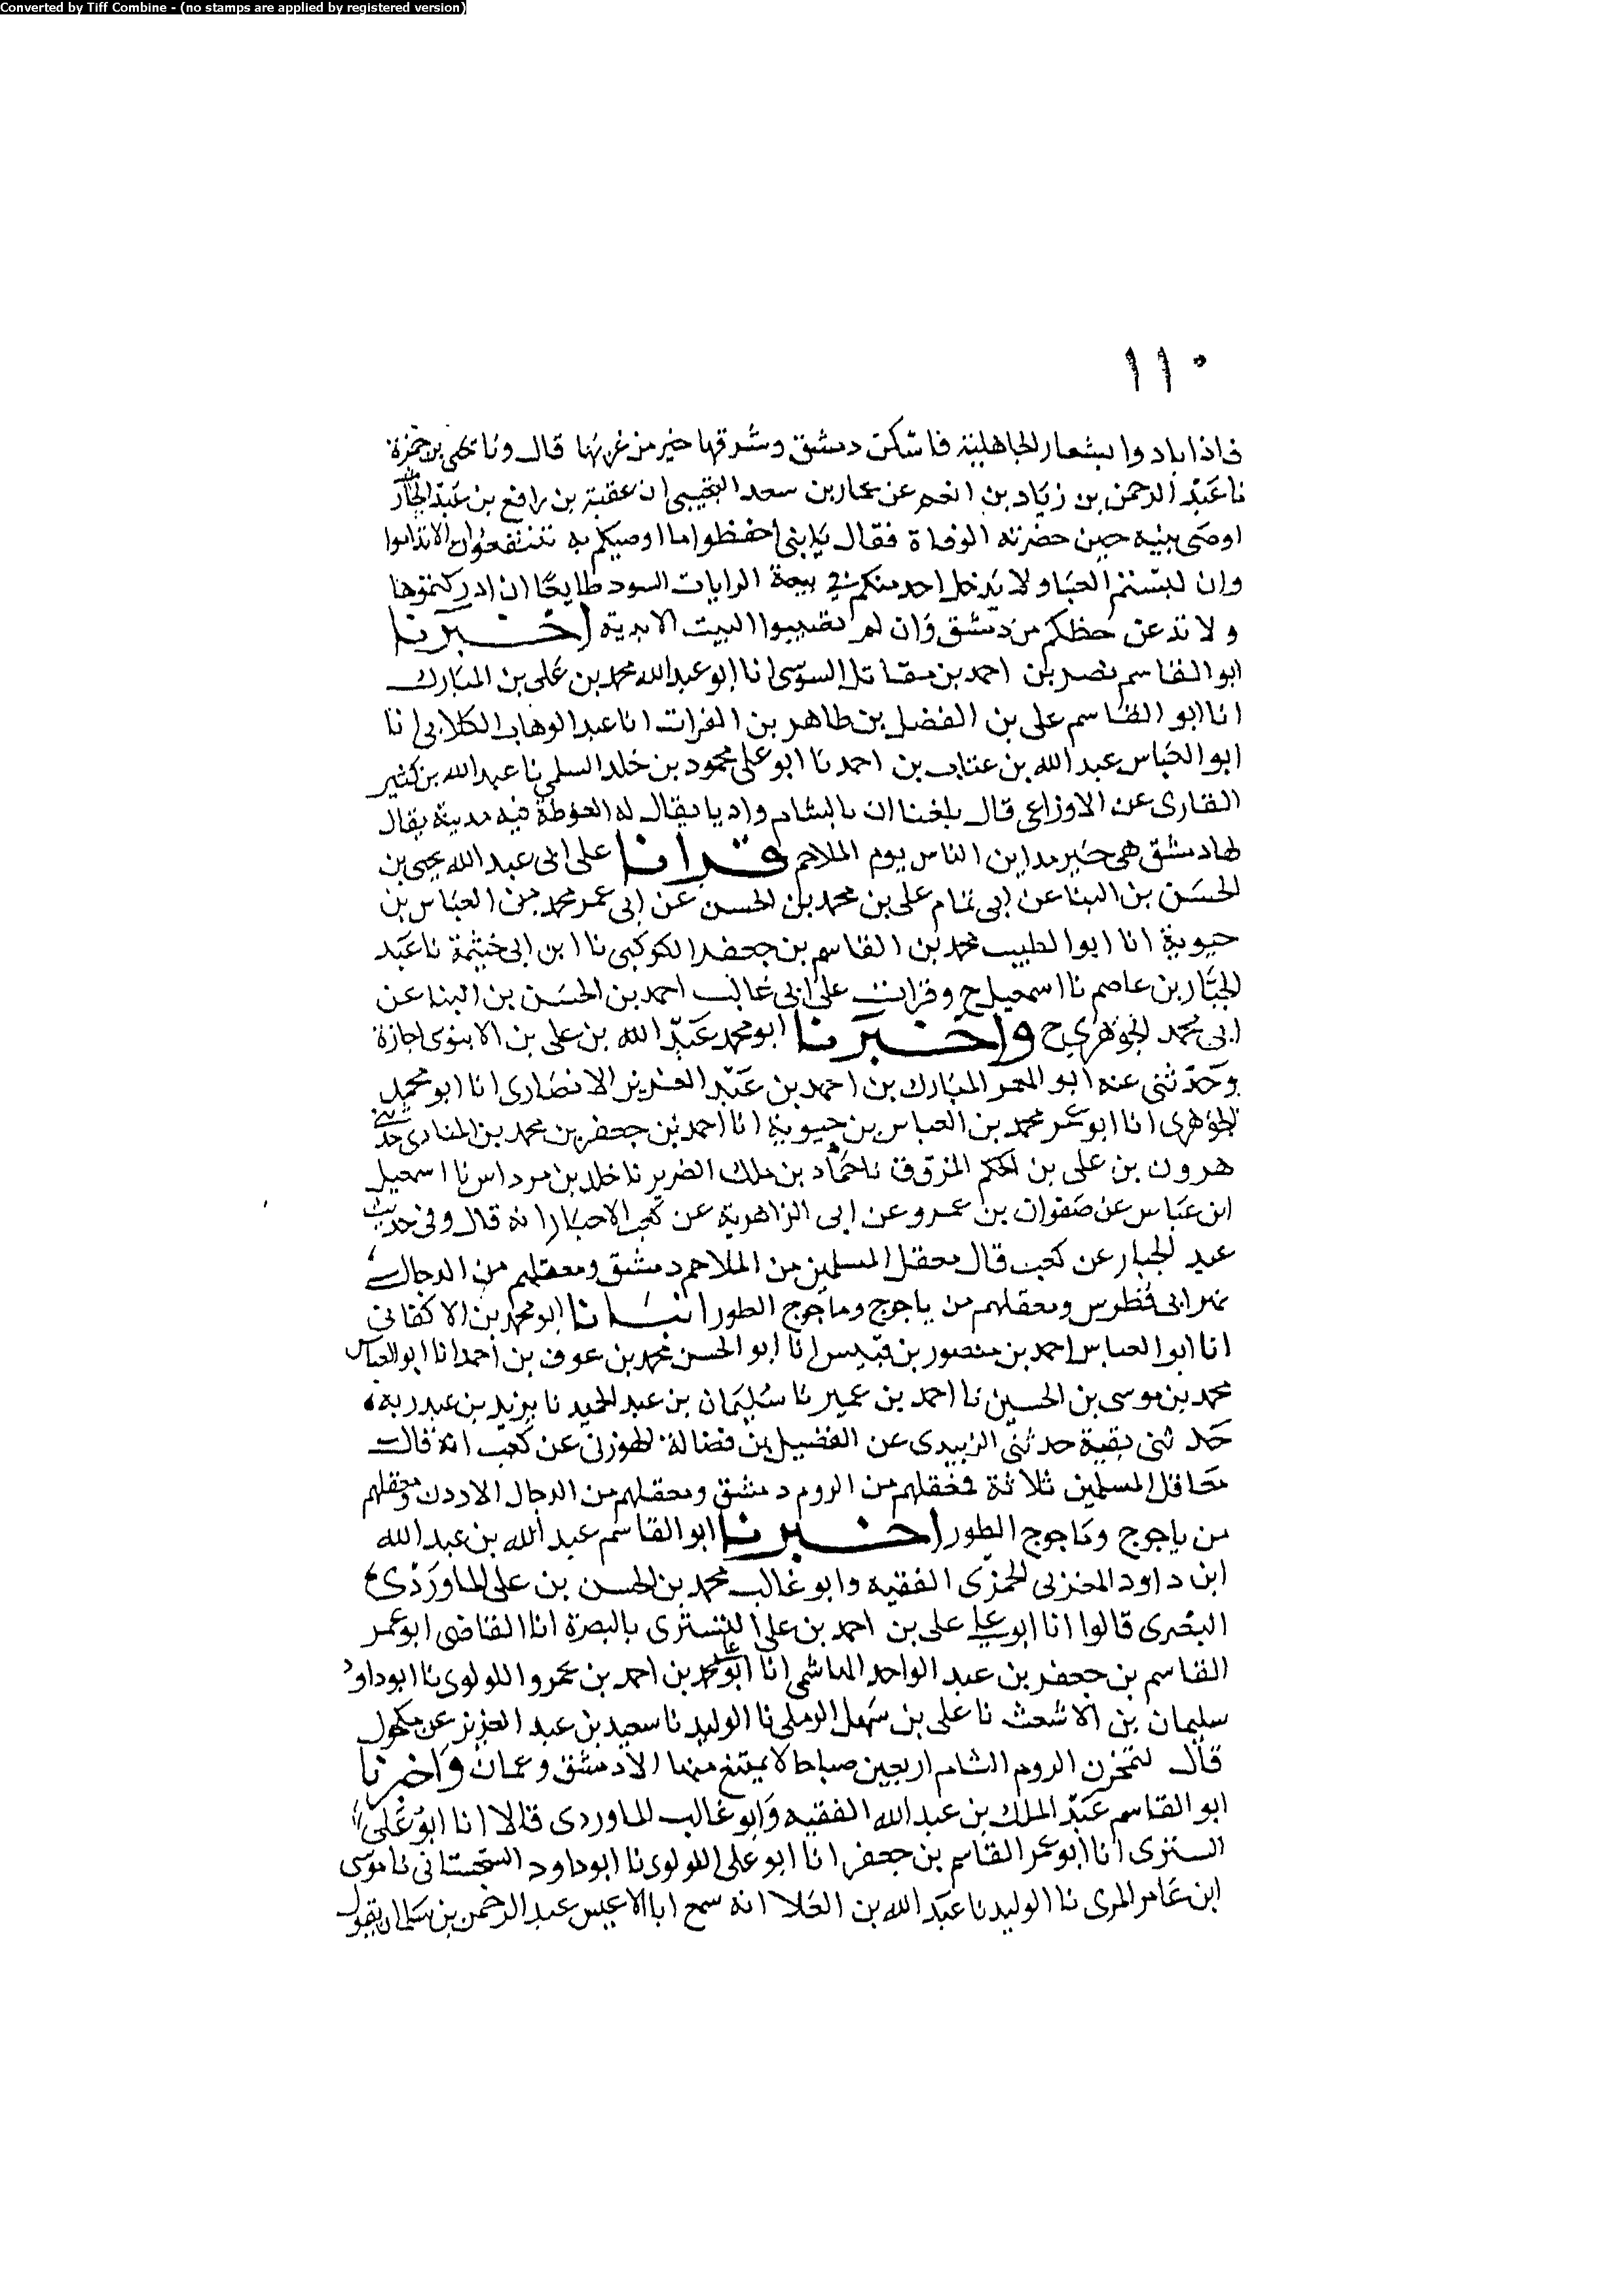 Converted by Tiff Combine - (no stamps are applied by registered version)
١١٠
فاذا بادوا بشعار الجاهلية فاسكن دمشق وشرقها خير من غربها قال ونا يحيى بن حمزة
نا عبد الرحمن بن زياد بن انعم عن عمار بن سعد التجيبي ان عقبة بن رافع بن عبد الحارث
اوصى بنيه حين حضرته الوفاة فقال يا بني احفظوا ما اوصيكم به تنتفعوا ان لا تداينوا
وان لبستم العبا ولا يدخل احد منكم في بيعة الرايات السود طايعا ان ادركتموها
ولا تدعن حظكم من دمشق وان لم تصيبوا البيت الا بدية اخبرنا
ابو القاسم نصر بن احمد بن مقاتل السوسي انا ابو عبد الله محمد بن علي بن المبارك
انا ابو القاسم علي بن الفضل بن طاهر بن الفرات انا عبد الوهاب الكلابي انا
ابو العباس عبد الله بن عتاب بن احمد نا ابو علي محمود بن خلد السلمي نا عبد الله بن كثير
القارى عن الاوزاعي قال بلغنا ان بالشام واديا يقال له الغوطة فيه مدينة يقال
لها دمشق هي خير مداين الناس يوم الملاحم قرانا على ابي عبد الله يحيى بن
الحسن بن البنا عن ابي تمام علي بن محمد بن الحسن عن ابي عمر محمد بن العباس بن
حيوية انا ابو الطيب محمد بن القاسم بن جعفر الكوكبي نا ابن ابي خيثمة نا عبد
الجبار بن عاصم نا اسمعيل ح وقرات على ابي غالب احمد بن الحسن بن البنا عن
ابي محمد الجوهري ح واخبرنا ابو محمد عبد الله بن علي بن الابنوى اجازة
وحدثني عنه ابو المعمر المبارك بن احمد بن عبد العزيز الانصارى انا ابو محمد
الجوهرى انا ابو عمر محمد بن العباس بن حيوية انا احمد بن جعفر بن محمد بن المنادى حدثني
هرون بن علي بن الحكم المزوق نا حماد بن ملك الضرير نا خلد بن مرداس نا اسمعيل
ابن عياس عن صفوان بن عمرو عن ابي الزاهرية عن كعب الاحبار انه قال وفي حديث
عبد الجبار عن كعب قال معقل المسلمين من الملاحم دمشق ومعقلهم من الدجال
نهر ابي فطرس ومعقلهم من ياجوج وماجوج الطور انبانا ابو محمد بن الاكفاني
انا ابو العباس احمد بن منصور بن قبيس انا ابو الحسن محمد بن عوف بن احمد انا ابو العباس
محمد بن موسى بن الحسين نا احمد بن عمير نا سليمان بن عبد الحميد نا يزيد بن عبد ربه
حدثني بقية حدثني الزبيدى عن الفضيل بن فضالة الهوزني عن كعب انه قال
معاقل المسلمين ثلاثة فمعقلهم من الروم دمشق ومعقلهم من الدجال الاردن ومعقلهم
من ياجوج وماجوج الطور اخبرنا ابو القاسم عبد الله بن عبد الله
ابن داود المغربي الحمزى الفقيه وابو غالب محمد بن الحسن بن علي الماوردى
البصرى قالوا انا ابو علي علي بن احمد بن علي التسترى بالبصرة انا القاضي ابو عمر
القاسم بن جعفر بن عبد الواحد الهاشمي انا ابو علي محمد بن احمد بن عمرو اللولوى نا ابو داود
سليمان بن الاشعث نا علي بن سهل الرملي نا الوليد نا سعيد بن عبد العزيز عن مكحول
قال لتمخرن الروم الشام اربعين صباحا لا يمتنع منها الا دمشق وعمان واخبرنا
ابو القاسم عبد الملك بن عبد الله الفقيه وابو غالب الماوردى قالا انا ابو علي
التسترى انا ابو عمر القاسم بن جعفر انا ابو علي اللولوى نا ابو داود السجستاني نا موسى
ابن عامر المرى نا الوليد نا عبد الله بن العلا انه سمع ابا الاعيس عبد الرحمن بن سلمان يقول